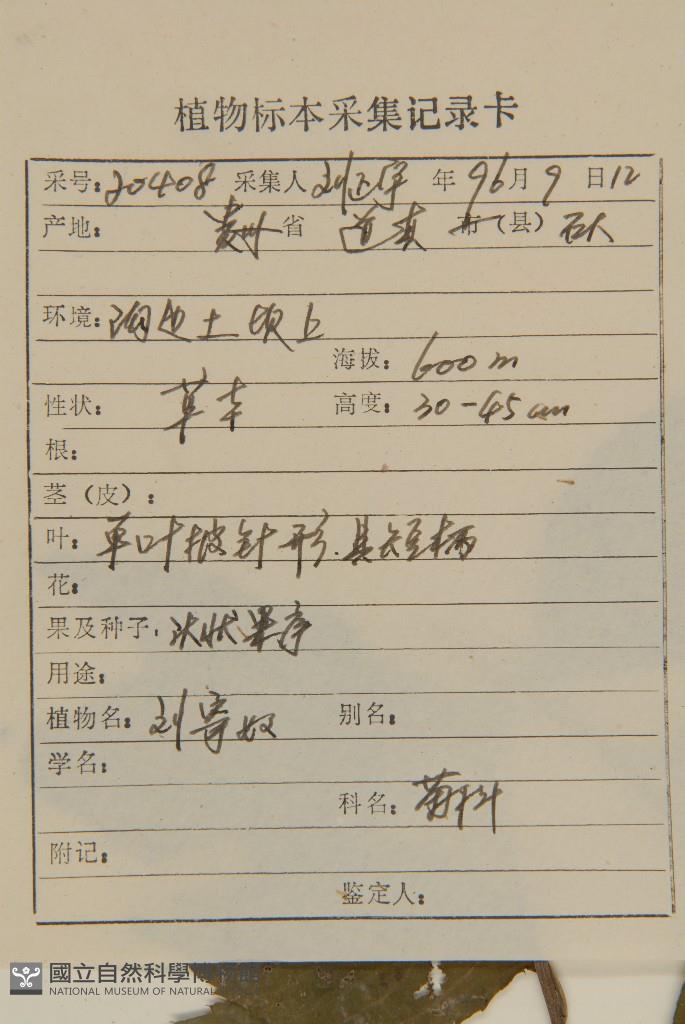 植物标本采集记录卡
采号: 20408 采集人 刘正宇 年 96 月 9 日 12
产地: 贵州 省 道真 市(县) 石人
环境: 沟边土坝上
海拔: 600m
性状: 草本 高度: 30-45cm
根:
茎(皮):
叶: 单叶披针形.具短柄
花:
果及种子: 状果序
用途:
植物名: 刘寄奴 别名:
学名:
科名: 菊科
附记:
鉴定人:
國立自然科學博物館
NATIONAL MUSEUM OF NATURAL